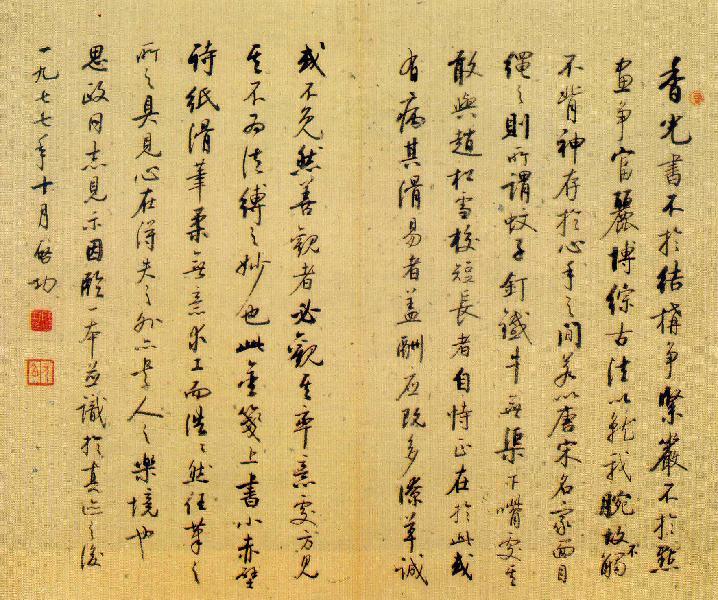 香光書不於結構爭緊嚴不於點
畫爭富麗博綜古法以就我腕故觸
不背神存於心手之間若以唐宋名家面目
繩之則所謂蚊子釘鐵牛無渠下嘴處其
敢與趙松雪校短長者自恃正在於此或
有病其滑易者蓋酬應既多潦草誠
或不免然善觀者必觀其率意處方見
其不為法縛之妙也此金箋上書小赤壁
詩紙滑筆柔無意求工而浩浩然任筆之
所之具見心在得失之外亦是人之樂境也
思政同志見示因臨一本並識於真跡之後
一九七七年十月啟功